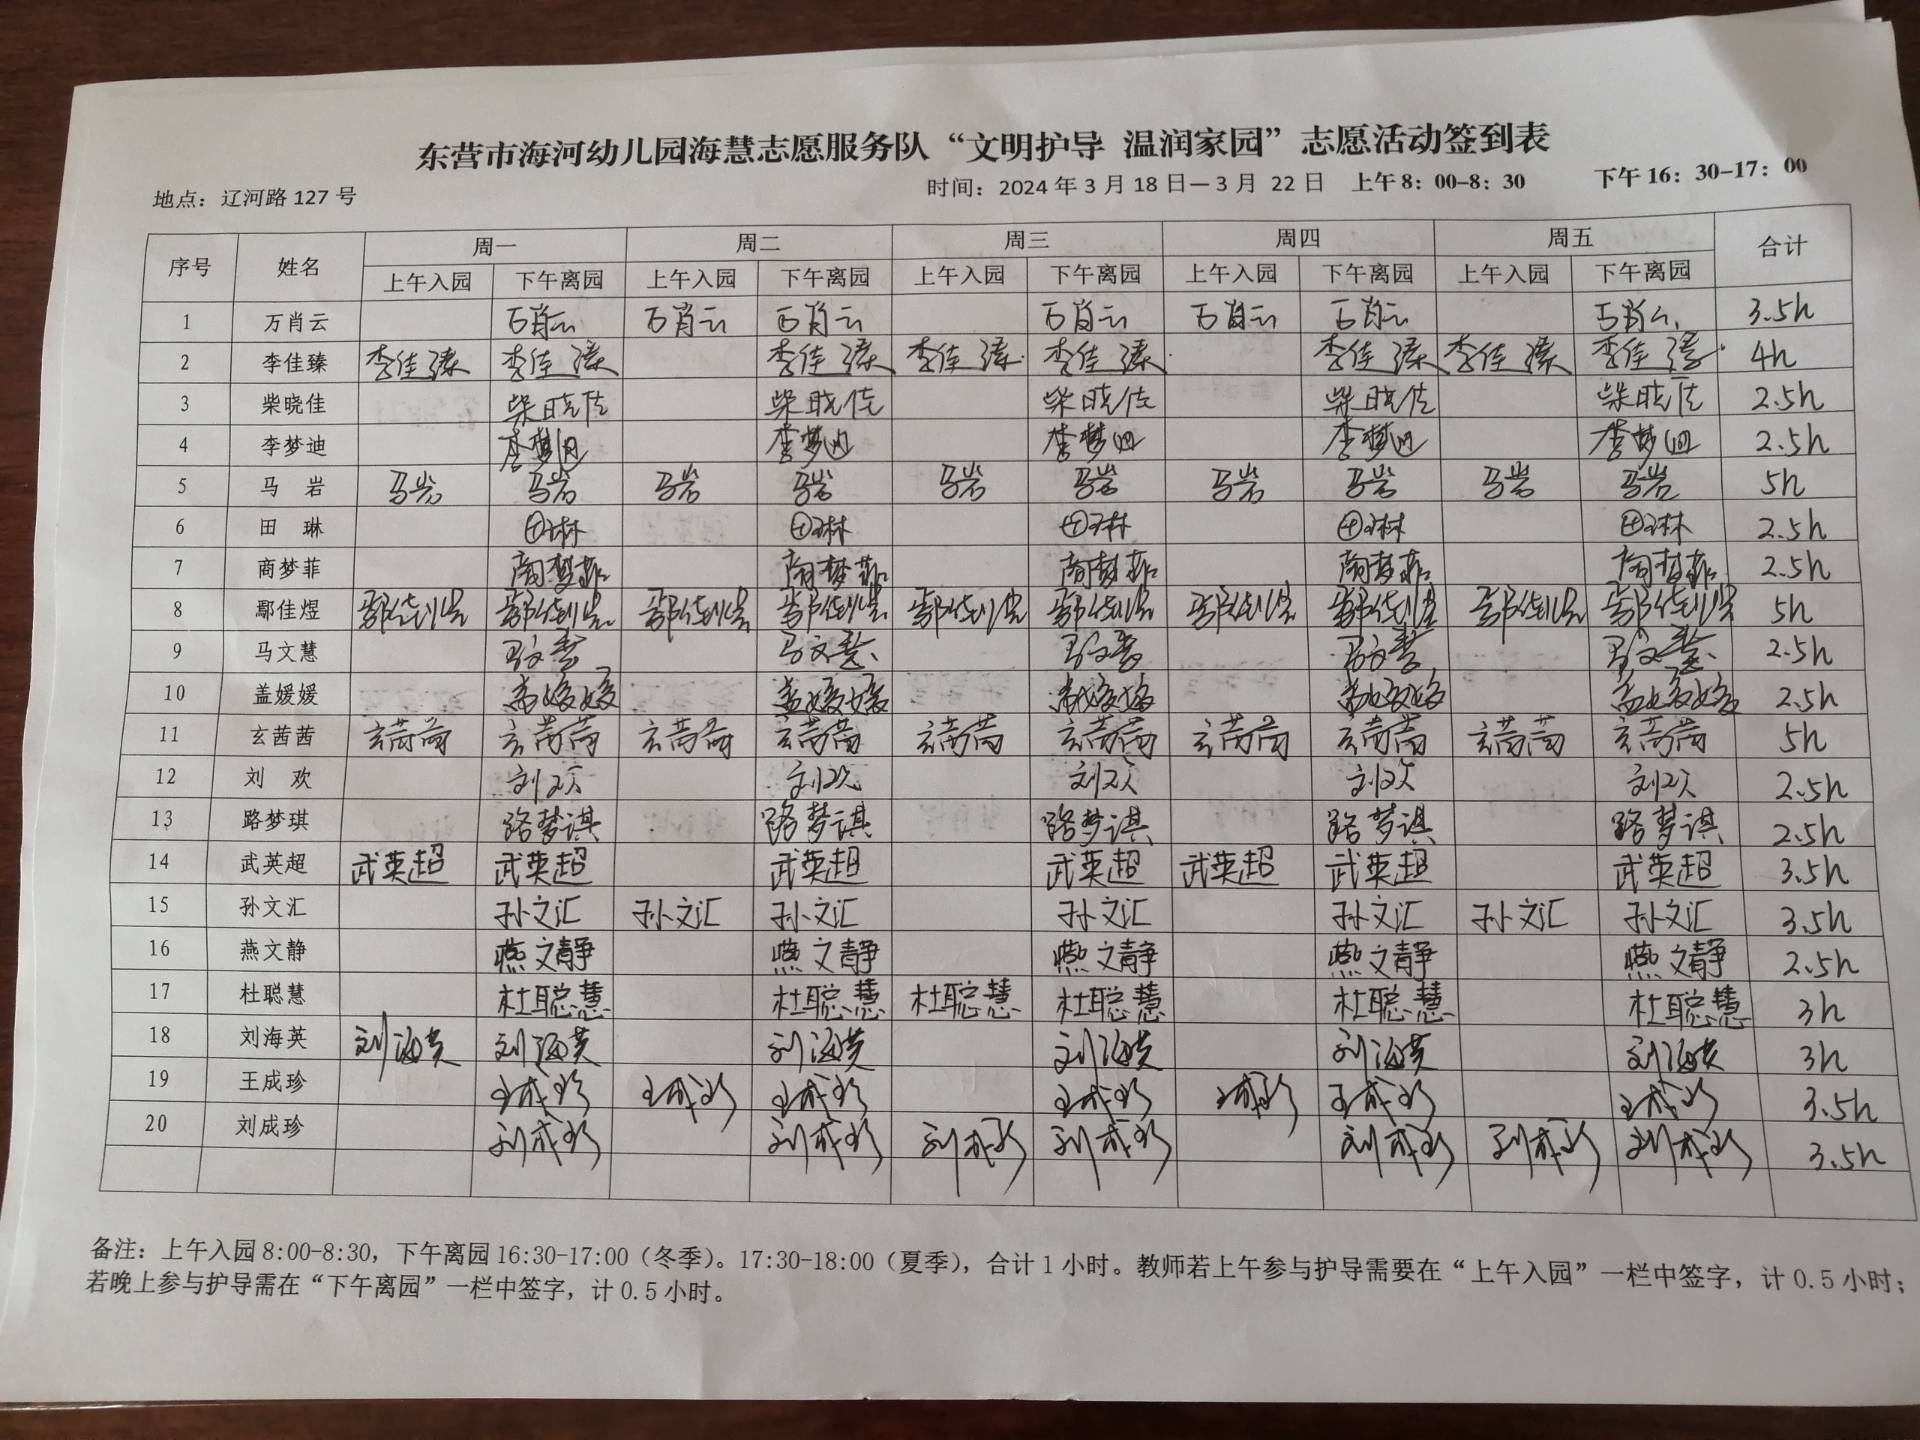 东营市海河幼儿园海慧志愿服务队“文明护导 温润家园”志愿活动签到表
地点：辽河路 127 号 时间：2024 年 3 月 18 日—3 月 22 日 上午 8：00-8：30 下午 16：30-17：00
序号 姓名 周一 周二 周三 周四 周五 合计
上午入园 下午离园 上午入园 下午离园 上午入园 下午离园 上午入园 下午离园 上午入园 下午离园
1 万肖云 万肖云 万肖云 万肖云 万肖云 万肖云 万肖云 万肖云 3.5h
2 李佳臻 李佳臻 李佳臻 李佳臻 李佳臻 李佳臻 李佳臻 李佳臻 李佳臻 4h
3 柴晓佳 柴晓佳 柴晓佳 柴晓佳 柴晓佳 柴晓佳 2.5h
4 李梦迪 李梦迪 李梦迪 李梦迪 李梦迪 李梦迪 2.5h
5 马 岩 马岩 马岩 马岩 马岩 马岩 马岩 马岩 马岩 马岩 马岩 5h
6 田 琳 田琳 田琳 田琳 田琳 田琳 2.5h
7 商梦菲 商梦菲 商梦菲 商梦菲 商梦菲 商梦菲 2.5h
8 鄢佳煜 鄢佳煜 鄢佳煜 鄢佳煜 鄢佳煜 鄢佳煜 鄢佳煜 鄢佳煜 鄢佳煜 鄢佳煜 鄢佳煜 5h
9 马文慧 马文慧 马文慧 马文慧 马文慧 马文慧 2.5h
10 盖媛媛 盖媛媛 盖媛媛 盖媛媛 盖媛媛 盖媛媛 2.5h
11 玄茜茜 玄茜茜 玄茜茜 玄茜茜 玄茜茜 玄茜茜 玄茜茜 玄茜茜 玄茜茜 玄茜茜 玄茜茜 5h
12 刘 欢 刘欢 刘欢 刘欢 刘欢 刘欢 2.5h
13 路梦琪 路梦琪 路梦琪 路梦琪 路梦琪 路梦琪 2.5h
14 武英超 武英超 武英超 武英超 武英超 武英超 武英超 武英超 3.5h
15 孙文汇 孙文汇 孙文汇 孙文汇 孙文汇 孙文汇 孙文汇 孙文汇 3.5h
16 燕文静 燕文静 燕文静 燕文静 燕文静 燕文静 2.5h
17 杜聪慧 杜聪慧 杜聪慧 杜聪慧 杜聪慧 杜聪慧 杜聪慧 3h
18 刘海英 刘海英 刘海英 刘海英 刘海英 刘海英 刘海英 3h
19 王成珍 王成珍 王成珍 王成珍 王成珍 王成珍 王成珍 王成珍 3.5h
20 刘成珍 刘成珍 刘成珍 刘成珍 刘成珍 刘成珍 刘成珍 刘成珍 3.5h
备注：上午入园 8:00-8:30，下午离园 16:30-17:00（冬季）。17:30-18:00（夏季），合计 1 小时。教师若上午参与护导需要在“上午入园”一栏中签字，计 0.5 小时；
若晚上参与护导需在“下午离园”一栏中签字，计 0.5 小时。